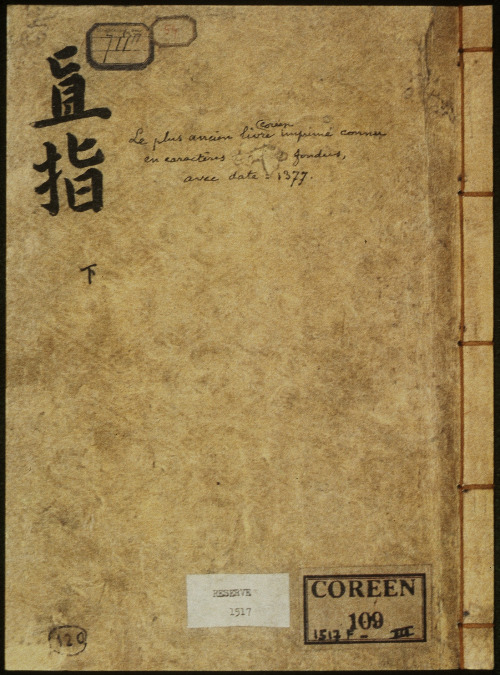 7117
直指
下
Le plus ancien livre Coreen imprimé connu
en caractères fondus,
avec date = 1377.
RESERVE
1517
COREEN
109
1517 F - III
120